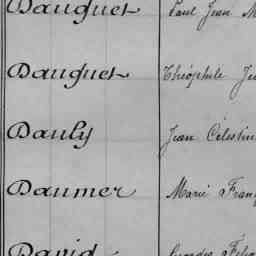 Dauguet Paul Jean
Dauguet Théophile
Dauly Jean Célestin
Daumer Marie
David